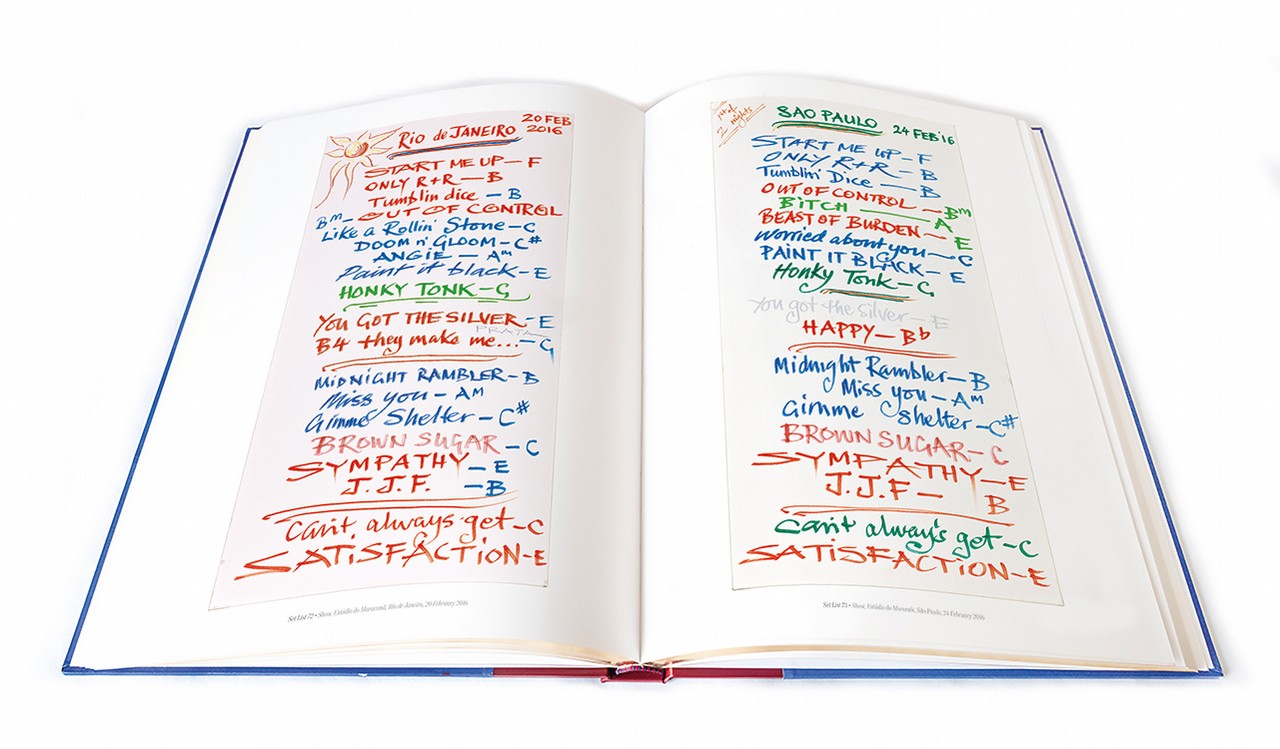 Rio de JANEIRO
20 FEB
2016
START ME UP – F
ONLY R+R – B
Tumblin dice – B
Bm – OUT OF CONTROL
Like a Rollin' Stone – C
DOOM n' GLOOM – C#
ANGIE – Am
Paint it black – E
HONKY TONK – G
YOU GOT THE SILVER – E
PRATA
B4 they make me... – G
MIDNIGHT RAMBLER – B
Miss you – AM
Gimme Shelter – C#
BROWN SUGAR – C
SYMPATHY – E
J.J.F. – B
Can't always get – C
SATISFACTION – E
Set List 72 • Show, Estádio do Maracanã, Rio de Janeiro, 20 February 2016
1st of
2 nights
SAO PAULO
24 FEB '16
START ME UP – F
ONLY R+R – B
Tumblin' Dice – B
OUT OF CONTROL – Bm
BITCH – A
BEAST OF BURDEN – E
Worried about you – C
PAINT IT BLACK – E
Honky Tonk – G
You got the silver – E
HAPPY – Bb
Midnight Rambler – B
Miss you – Am
Gimme Shelter – C#
BROWN SUGAR – C
SYMPATHY – E
J.J.F – B
Can't always get – C
SATISFACTION – E
Set List 73 • Show, Estádio do Morumbi, São Paulo, 24 February 2016